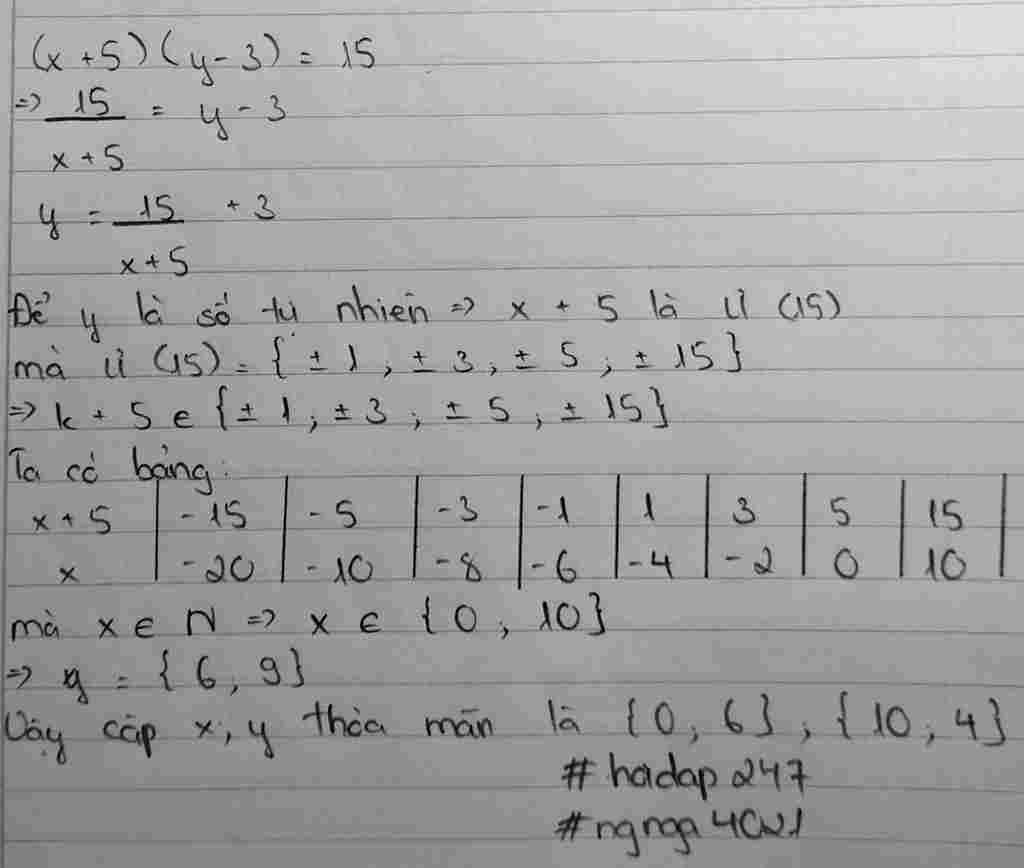 (x + 5) (y - 3) = 15
=> 15/(x + 5) = y - 3
y = 15/(x + 5) + 3
Để y là số tự nhiên => x + 5 là Ư (15)
mà Ư (15) = { ± 1 ; ± 3 ; ± 5 ; ± 15 }
=> k + 5 ∈ { ± 1 ; ± 3 ; ± 5 ; ± 15 }
Ta có bảng:
x + 5 | -15 | -5 | -3 | -1 | 1 | 3 | 5 | 15 |
x | -20 | -10 | -8 | -6 | -4 | -2 | 0 | 10 |
mà x ∈ N => x ∈ { 0 , 10 }
=> y = { 6 , 9 }
Vậy cặp x, y thỏa mãn là { 0 , 6 } ; { 10 ; 4 }
# hoidap 247